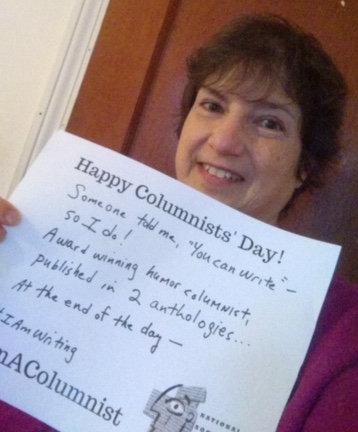 Happy Columnists' Day!
Someone told me, "You can write" –
so I do!
Award winning humor columnist,
published in 2 anthologies...
At the end of the day –
IAmWriting
ACOlumnist
NATIONAL